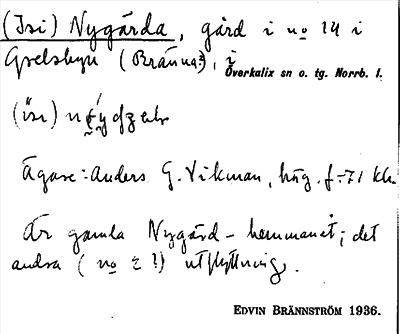 (Isi) Nygårda, gård i no 14 i
Grelsbyn (Bränna?), i
Överkalix sn o. tg. Norrb. l.
(isi)
Ägare: Anders G. Vikman, häg. f. 71 kh.
Är gamla Nygård-hemmanet; det
andra (no 2?) utflyttning.
EDVIN BRÄNNSTRÖM 1936.